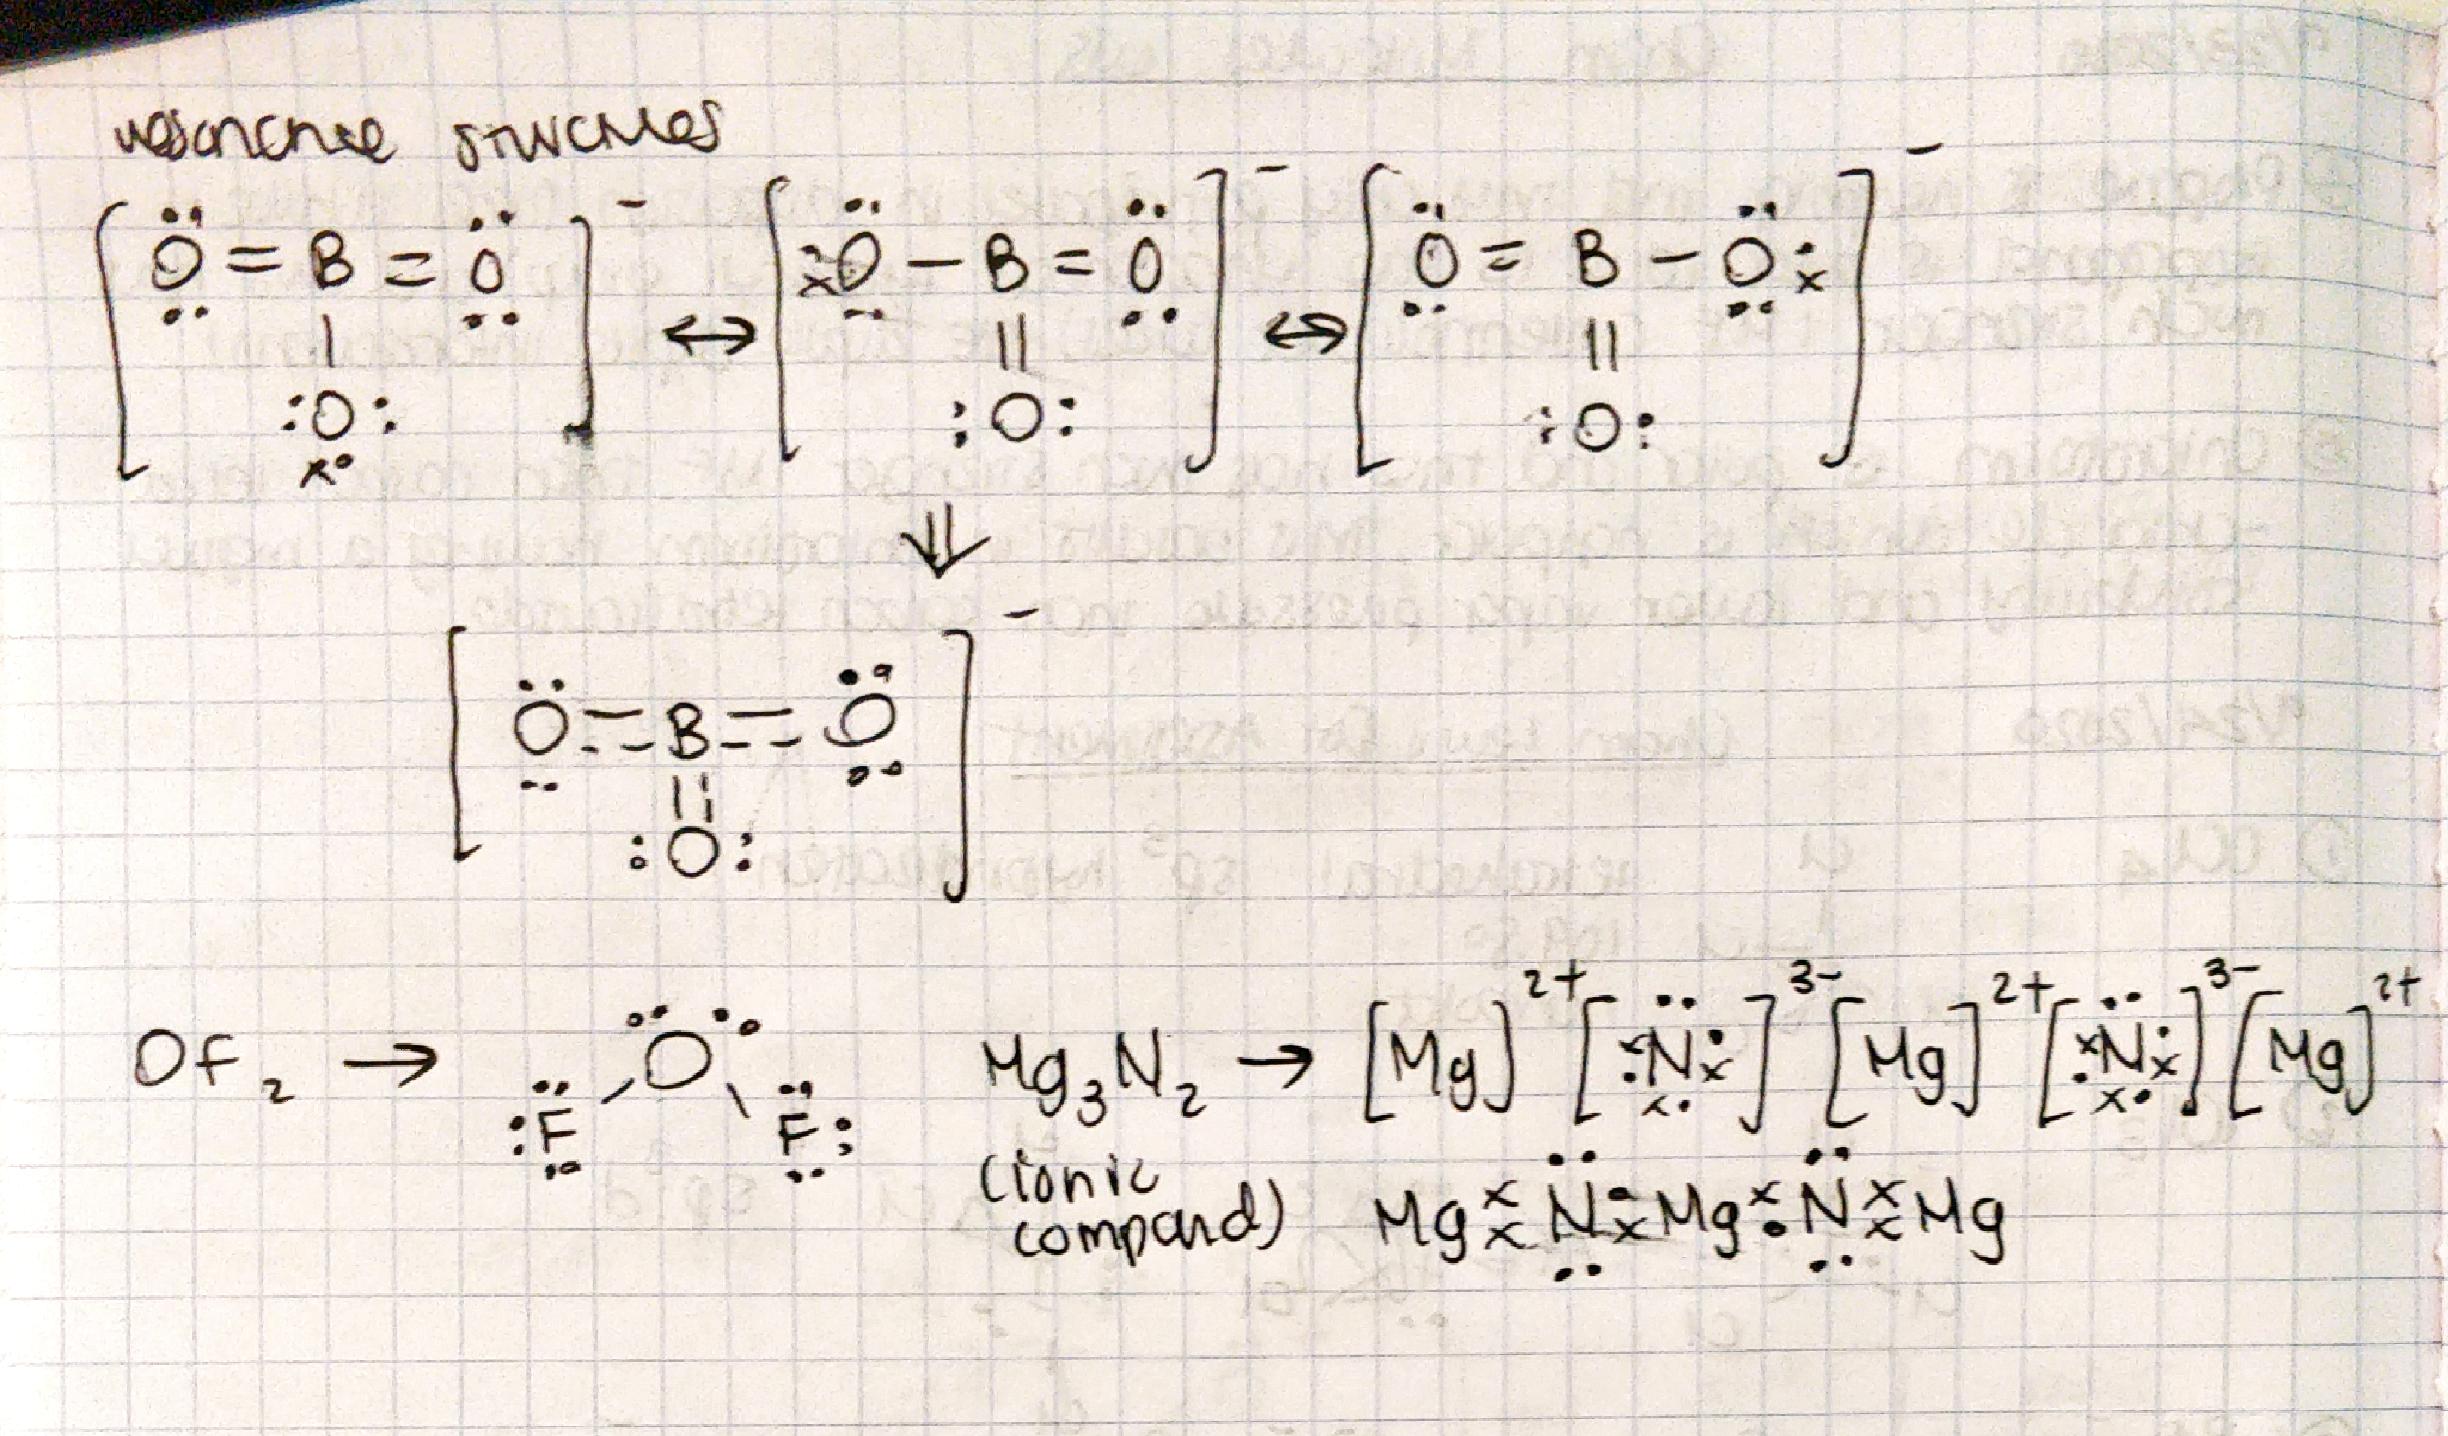 resonance structures
[Ö = B = Ö]⁻ ↔ [Ö – B = Ö]⁻ ↔ [Ö = B – Ö]⁻
| || ||
:O: :O: :O:
x•
⇓
[Ö = B = Ö]⁻
||
:O:
OF₂ → :F – O – F: Mg₃N₂ → [Mg]²⁺ [N]³⁻ [Mg]²⁺ [N]³⁻ [Mg]²⁺
(ionic
compound) Mg ×× N •× Mg ו N ×× Mg